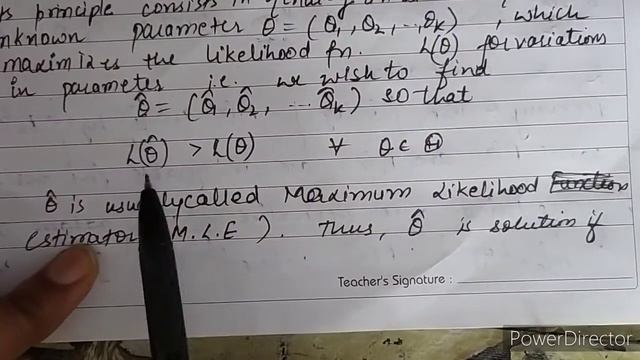 principle consists in
unknown parameter θ = (θ1, θ2, ..., θk), which
maximizes the likelihood fn. L(θ) for variations
in parameter i.e. we wish to find
θ̂ = (θ̂1, θ̂2, ... θ̂k) so that
L(θ̂) > L(θ) ∀ θ ∈ Θ
θ̂ is usually called Maximum Likelihood
Estimator (M.L.E). Thus, θ̂ is solution if
Teacher's Signature :
PowerDirector